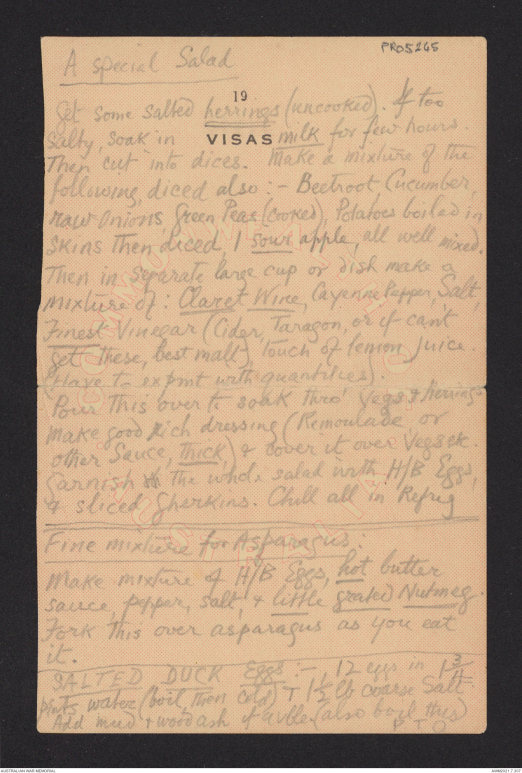 PR05265
A special Salad
19
VISAS
Get some salted herrings (uncooked). If too
salty, soak in milk for few hours.
Then cut into dices. Make a mixture of the
following, diced also :- Beetroot Cucumber,
raw onions, Green Peas (cooked), Potatoes boiled in
skins then diced, 1 sour apple, all well mixed.
Then in separate large cup or dish make a
mixture of : Claret Wine, Cayenne Pepper, Salt,
Finest Vinegar (Cider, Taragon, or if can't
get these, best malt), Touch of lemon juice.
(Have to expmt with quantities).
Pour this over & soak thro' Vegs & Herrings
make good rich dressing (Remoulade or
other Sauce, thick) & cover it over Vegs etc.
Garnish the whole salad with H/B Eggs,
& sliced Gherkins. Chill all in Refrig
Fine mixture for Asparagus :
Make mixture of H/B Eggs, hot butter
sauce, pepper, salt, & little grated Nutmeg.
Fork this over asparagus as you eat
it.
SALTED DUCK Eggs :- 12 eggs in 1 3/4
pints water (boil, then cold) + 1 1/2 lb coarse Salt
Add mud + wood ash (also boil this)
P T O
AUSTRALIAN WAR MEMORIAL